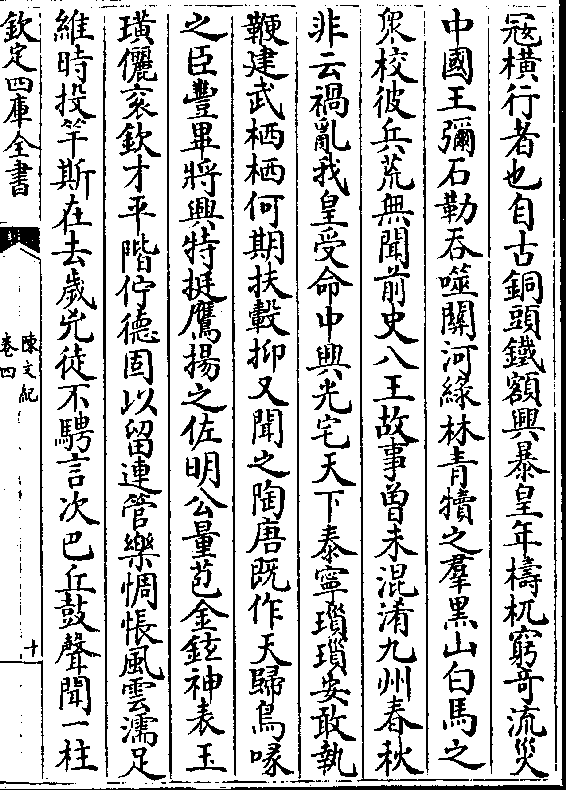 冦横行者也自古銅頭鐵額興暴皇年檮杌窮竒流災
中國王彌石勒吞噬關河緑林青犢之羣黒山白馬之
衆校彼兵荒無聞前史八王故事曽未混淆九州春秋
非云禍亂我皇受命中興光宅天下泰寧瑣瑣安敢執
鞭建武栖栖何期扶轂抑又聞之陶唐既作天歸鳥喙
之臣豐畢將興特挺鷹揚之佐明公量苞金鉉神表玉
璜儷衮欽才平階佇德固以留連管樂惆悵風雲濡足
維時投竿斯在去歲兇徒不騁言次巴丘鼓聲聞一柱
欽定四庫全書
陳文紀
卷四
十